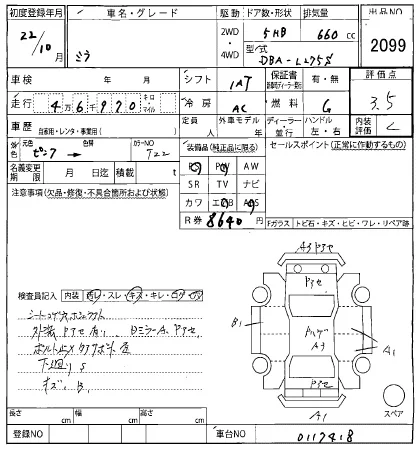 初度登録年月 車名・グレード 駆動 ドア数・形状 排気量 出品NO
22/10月 ミラ 2WD 4WD 5HB 660 cc 2099
型式 DBA-L275S
車検 年 月 シフト IAT 保証書 有・無 評価点
走行 4万6千970 キロ・マイル 冷房 AC 燃料 G 3.5
車歴 自家用・レンタ・事業用( ) 定員 人 外車モデル 年 ディーラー・並行 ハンドル 左・右 内装評価 C
元色 ピンク → 色替 カラーNO T22 装備品(純正品に限る) セールスポイント(正常に作動するもの)
名義変更期限 月 日迄 積載 t PS PW AW
注意事項(欠品・修復・不具合箇所および状態) SR TV ナビ
カワ エAB AS
R券 8640 円 Fガラス トビ石・キズ・ヒビ・ワレ・リペア跡
A3 PアセPアセ
検査員記入 内装 汚レ・スレ・キズ・キレ・コゲ・穴
外装 Pアセ 有り、DミラーA、Pアセ
下廻り S
キズ、B、
B1
A3
A1
Pアセ
A1
スペア
長さ cm 幅 cm 高さ cm
登録NO 車台NO 0117418